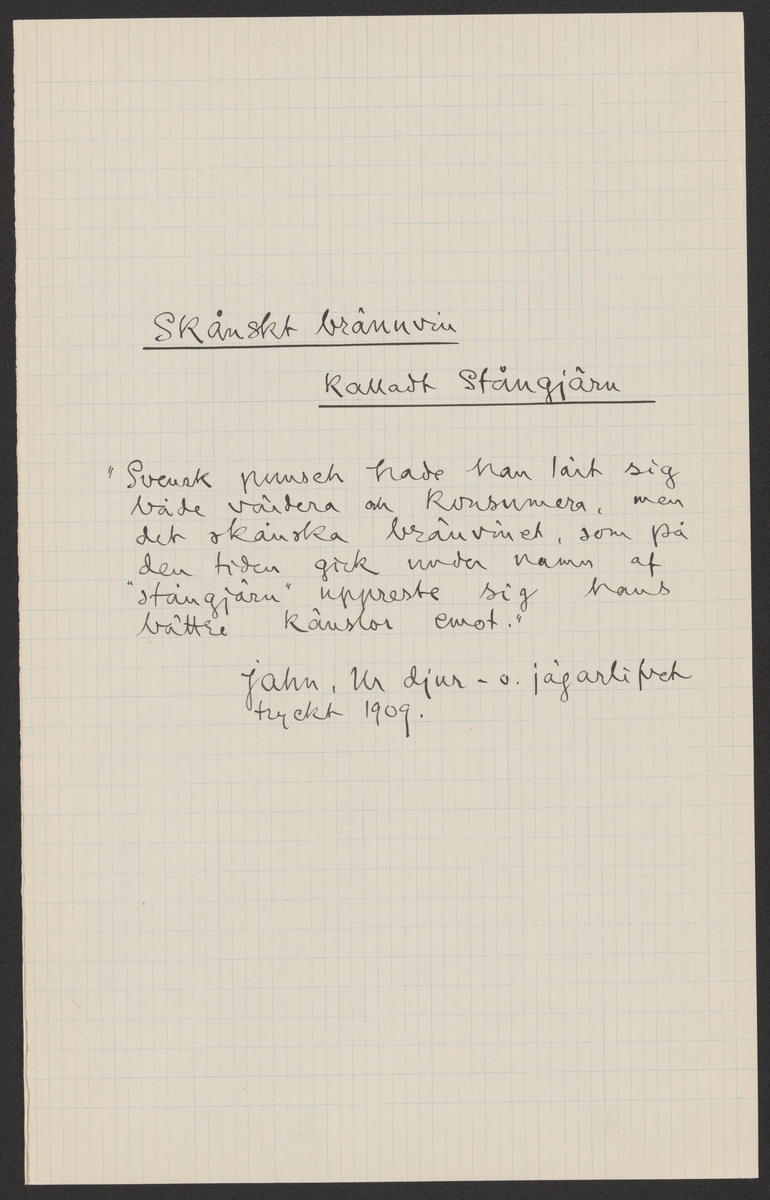 Skånskt brännvin
Kalladt Stångjärn
"Svensk punsch hade han lärt sig
både värdera och Konsumera, men
det skånska bränvinet, som på
den tiden gick under namn af
"stångjärn" uppreste sig hans
bättre känslor emot."
Jahn, Ur djur- o. jägarlifvet
tryckt 1909.